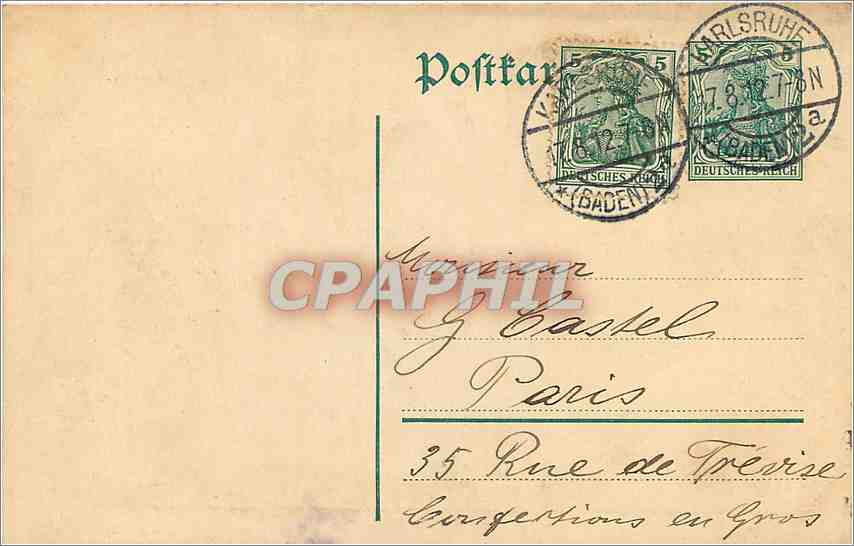 Postkar
5 5 5
DEUTSCHES REICH
DEUTSCHES REICH
KARLSRUHE
17.8.12.7-8N
*(BADEN)
KARLSRUHE
17.8.12.7-8N
*(BADEN) 2a
CPAPHIL
Monsieur
G Castel
Paris
35 Rue de Trévise
Confections en Gros